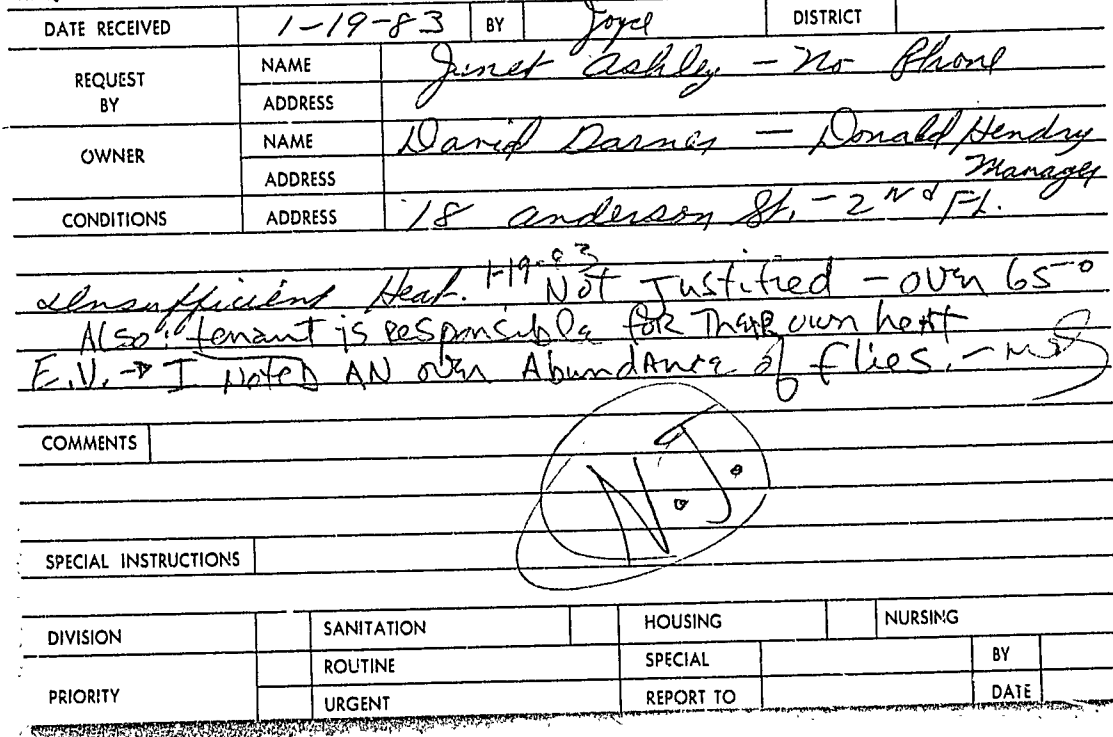 DATE RECEIVED 1-19-83 BY Joyce DISTRICT
REQUEST BY NAME Janet Ashley - No Phone
ADDRESS
OWNER NAME David Darnes - Donald Hendry
ADDRESS Manager
CONDITIONS ADDRESS 18 Anderson St. - 2nd Fl.
Insufficient Heat. 1-19-83 Not Justified - over 65°
Also: tenant is responsible for their own heat
E.V. → I Noted AN over Abundance of flies. -
COMMENTS
N.J.
SPECIAL INSTRUCTIONS
DIVISION SANITATION HOUSING NURSING
PRIORITY ROUTINE SPECIAL BY
URGENT REPORT TO DATE